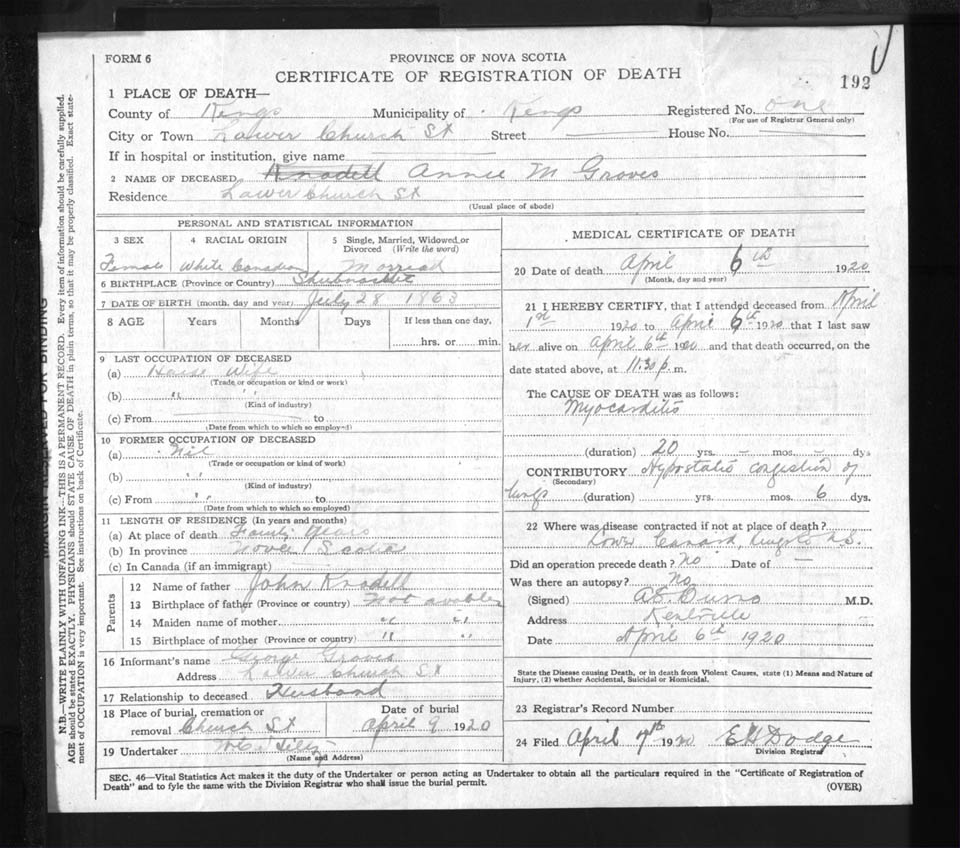 FORM 6
PROVINCE OF NOVA SCOTIA
CERTIFICATE OF REGISTRATION OF DEATH
192
1 PLACE OF DEATH—
County of Kings Municipality of Kings Registered No. one
(For use of Registrar General only)
City or Town Lower Church St Street House No.
If in hospital or institution, give name
2 NAME OF DECEASED Knodell Annie M Groves
Residence Lower Church St
(Usual place of abode)
PERSONAL AND STATISTICAL INFORMATION
3 SEX 4 RACIAL ORIGIN 5 Single, Married, Widowed or Divorced (Write the word)
Female White Canadian Married
6 BIRTHPLACE (Province or Country)
7 DATE OF BIRTH (month, day and year) July 28 1863
8 AGE Years Months Days If less than one day,
hrs. or min.
9 LAST OCCUPATION OF DECEASED
(a) House Wife
(Trade or occupation or kind or work)
(b) " "
(Kind of industry)
(c) From to
(Date from which to so employed)
10 FORMER OCCUPATION OF DECEASED
(a) Nil
(Trade or occupation or kind of work)
(b) "
(Kind of industry)
(c) From " to
(Date from which to so employed)
11 LENGTH OF RESIDENCE (In years and months)
(a) At place of death years
(b) In province Nova Scotia
(c) In Canada (if an immigrant)
Parents
12 Name of father John Knodell
13 Birthplace of father (Province or country) Not
14 Maiden name of mother " "
15 Birthplace of mother (Province or country) " "
16 Informant's name George Groves
Address Lower Church St
17 Relationship to deceased Husband
18 Place of burial, cremation or removal Church St
Date of burial April 9 1920
19 Undertaker
(Name and Address)
MEDICAL CERTIFICATE OF DEATH
20 Date of death April 6th 1920
(Month, day and year)
21 I HEREBY CERTIFY, that I attended deceased from April
1st 1920 to April 6th 1920 that I last saw
her alive on April 6th 1920 and that death occurred, on the
date stated above, at 11.30 p.m.
The CAUSE OF DEATH was as follows:
Myocarditis
(duration) 20 yrs. – mos. – dys
CONTRIBUTORY Hypostatic congestion of
(Secondary)
lungs (duration) yrs. mos. 6 dys.
22 Where was disease contracted if not at place of death?
Lower Canard, N.S.
Did an operation precede death? No Date of –
Was there an autopsy? No
(Signed) M.D.
Address Kentville
Date April 6th 1920
State the Disease causing Death, or in death from Violent Causes, state (1) Means and Nature of
Injury, (2) whether Accidental, Suicidal or Homicidal.
23 Registrar's Record Number
24 Filed April 7th 1920 E H Dodge
Division Registrar
SEC. 46—Vital Statistics Act makes it the duty of the Undertaker or person acting as Undertaker to obtain all the particulars required in the "Certificate of Registration of
Death" and to fyle the same with the Division Registrar who shall issue the burial permit.
(OVER)
MARGIN RESERVED FOR BINDING
N.B.—WRITE PLAINLY WITH UNFADING INK—THIS IS A PERMANENT RECORD. Every item of information should be carefully supplied.
AGE should be stated EXACTLY. PHYSICIANS should STATE CAUSE OF DEATH in plain terms, so that it may be properly classified. Exact statement of OCCUPATION is very important. See instructions on back of Certificate.